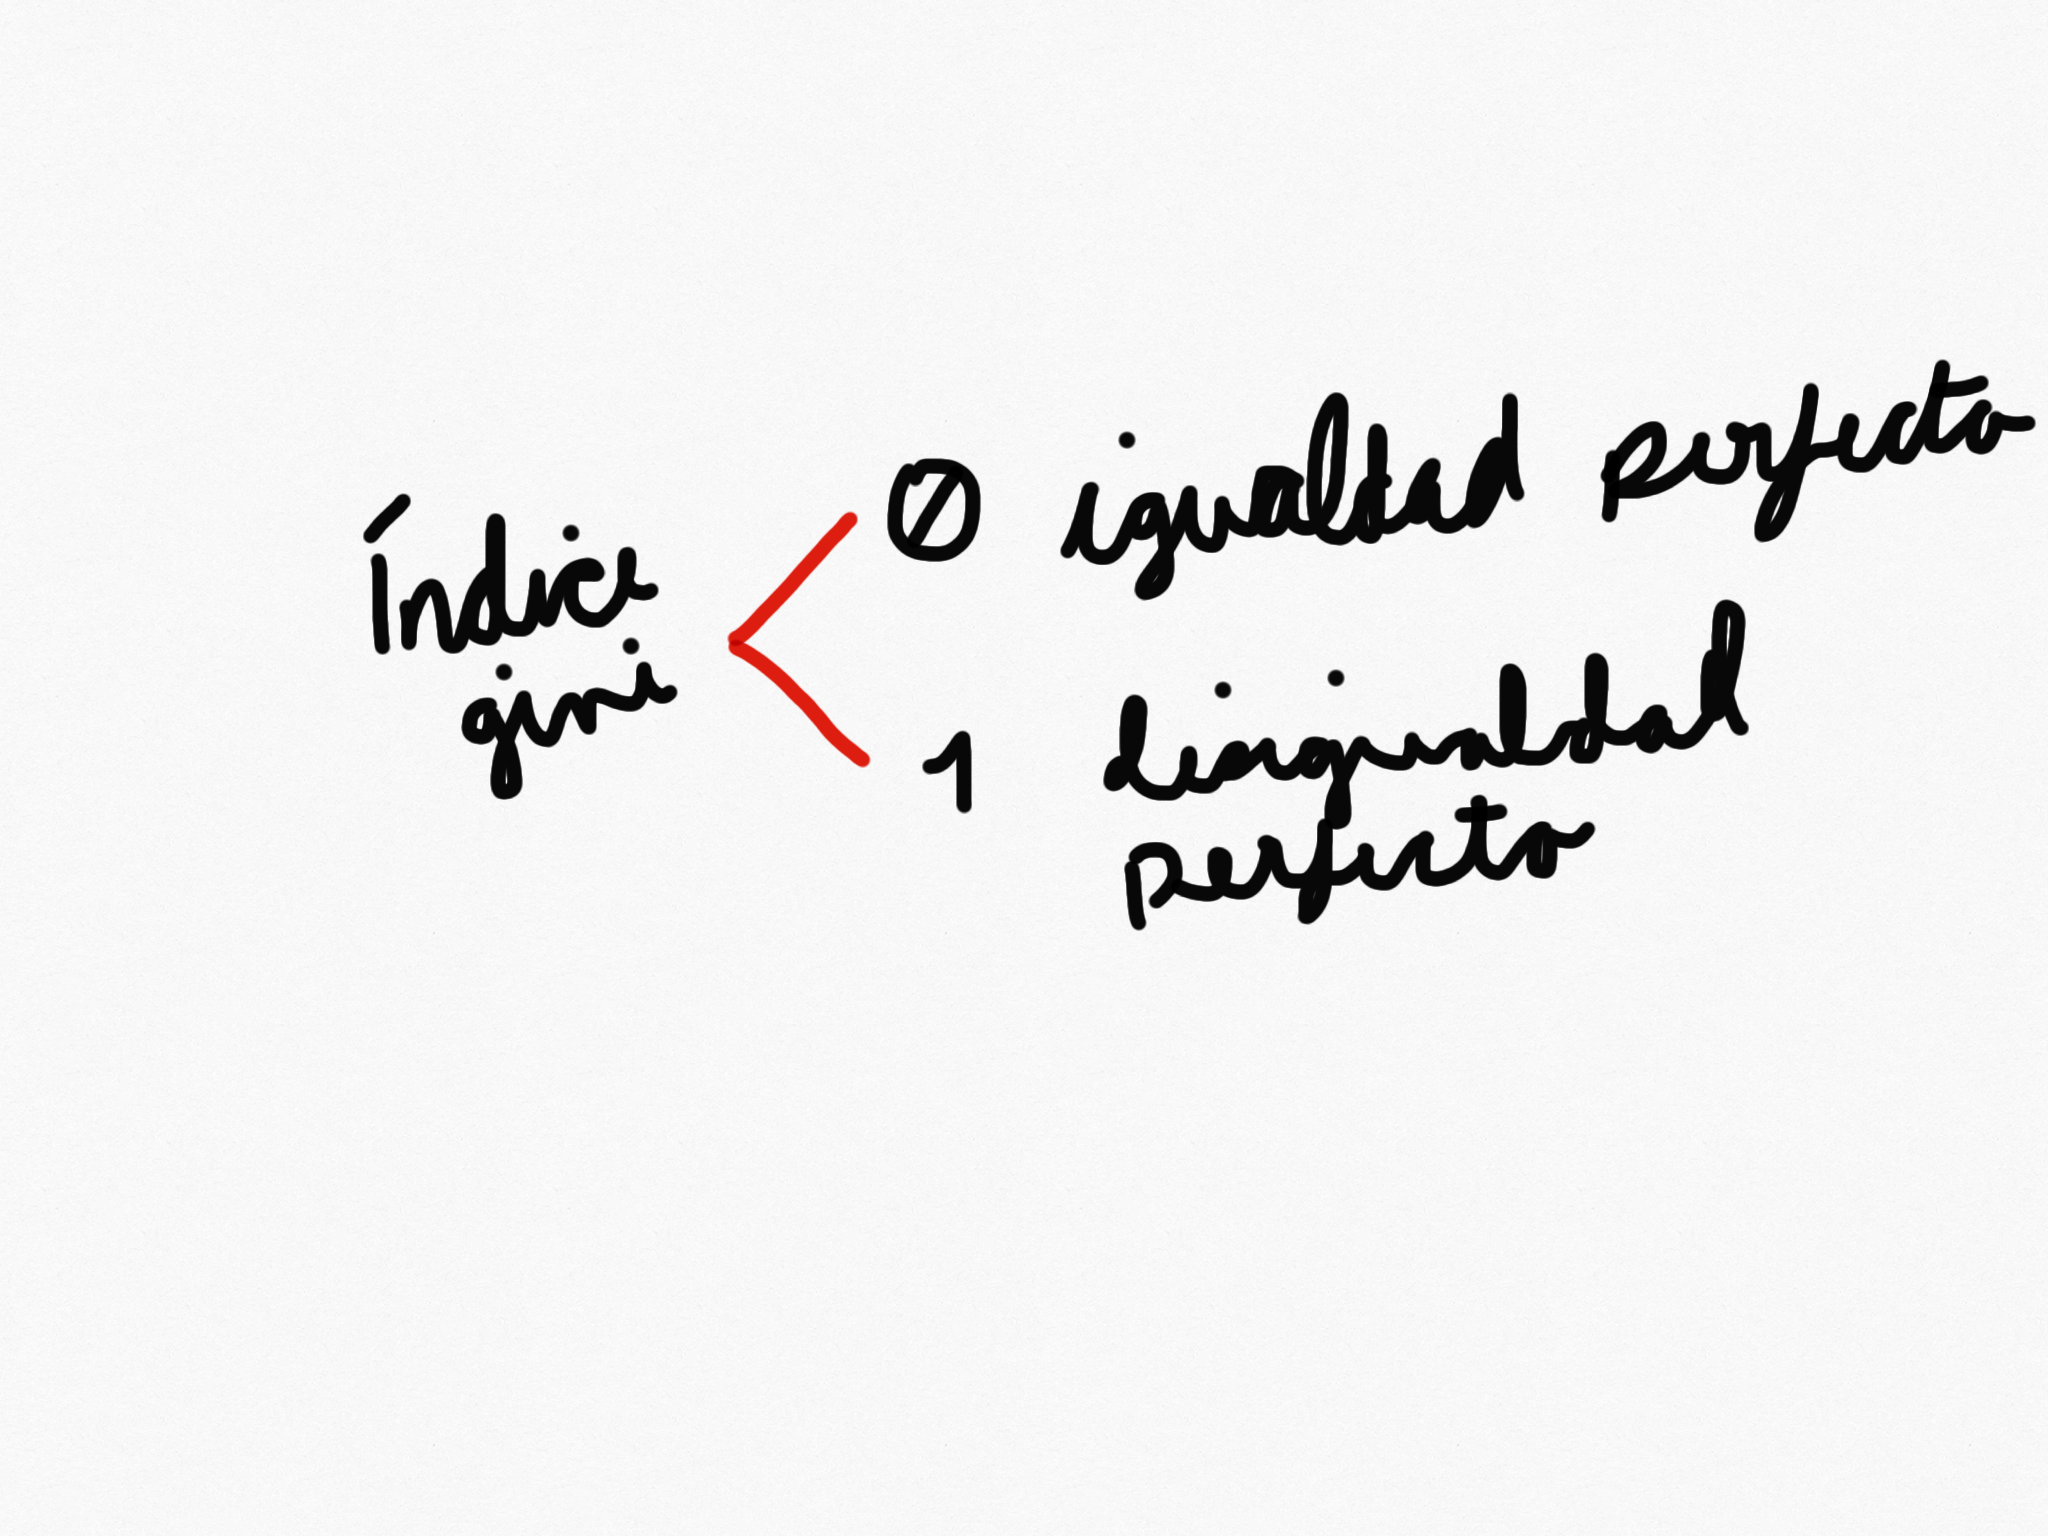 Índice
gini
0 igualdad perfecta
1 desigualdad
perfecta